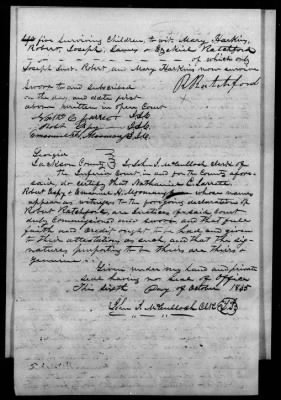 five Surviving Children, to wit, Mary Harkins,
Robert, Joseph, James & Ezekiel Ratchford
of which only
Joseph Robert, and Mary Harkins now survive
Sworn to and Subscribed
on the day and date first
above written in open Court
R Ratchford
Nath C Jarrett J.I.C.
Robt Espy J.I.C.
J.I.C.
Georgia
Jackson County I John F. McCulloch clerk of
the Inferior Court in and for the County afore-
said, do certify that Nathaniel C. Jarrett
Robert Espy & whose names
appear as witnesses to the foregoing declaration of
Robert Ratchford, are Justices of said Court
duly Commissioned and Sworn and that full
faith and Credit ought to be had and given
to their attestations as such, and that the sig-
natures purporting to be theirs are theirs &
genuine
Given under my hand and private
seal having no Seal of Office
This sixth Day of October 1845
John F. McCulloch Clk